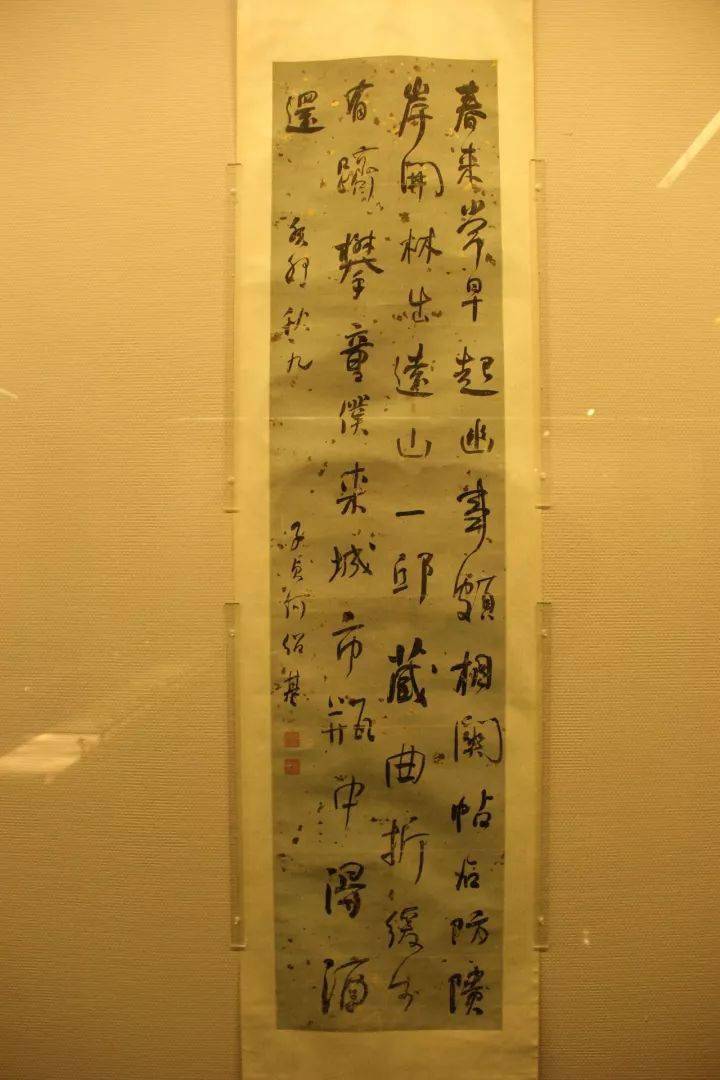 春来常早起幽事頗相關帖石防隤
岸開林出遠山一邱藏曲折緩步
有躋攀童僕来城市瓶中得酒
還 癸卯秋九 子貞何紹基